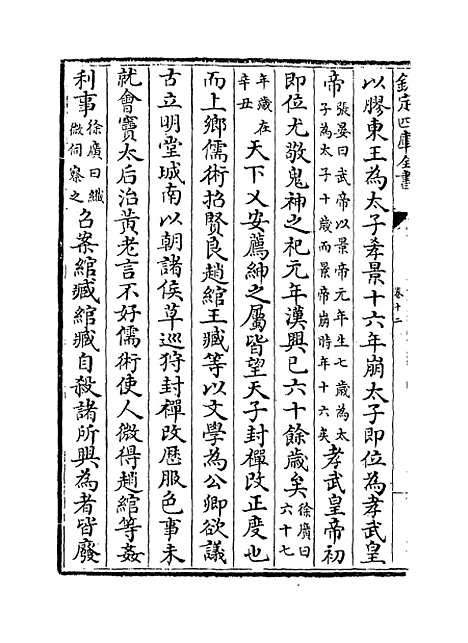 欽定四庫全書
卷十二
以膠東王為太子孝景十六年崩太子即位為孝武皇
帝張晏曰武帝以景帝元年生七歲為太子為太子十歲而景帝崩時年十六矣孝武皇帝初
即位尤敬鬼神之祀元年漢興已六十餘歲矣徐廣曰六十七
年歲在辛丑天下乂安薦紳之屬皆望天子封禪改正度也
而上鄉儒術招賢良趙綰王臧等以文學為公卿欲議
古立明堂城南以朝諸侯草巡狩封禪改歷服色事未
就會竇太后治黃老言不好儒術使人微得趙綰等姦
利事徐廣曰纖微伺察之召案綰臧綰臧自殺諸所興為者皆廢